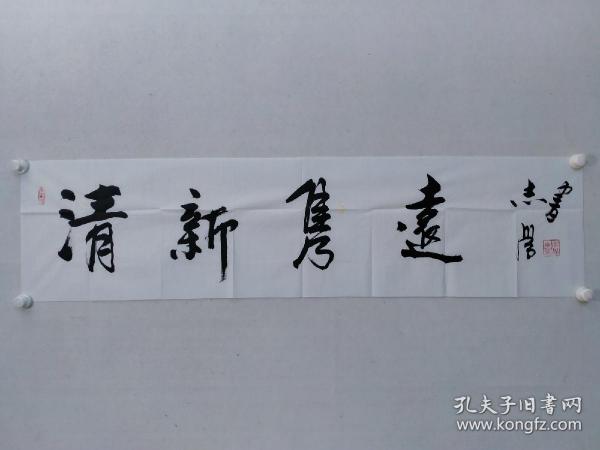 清新雋遠
志學書
孔夫子旧書网
www.kongfz.com